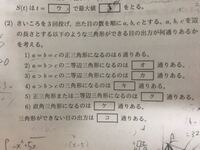 S(t) は t = ウ で最大値 をとる。
(2) さいころを3回投げ，出た目の数を順に a, b, c とする。a, b, c を辺
の長さとする以下のような三角形ができる目の出方が何通りあるか
を考える。
1) a = b = c の正三角形になるのは 6 通りある。
2) a = b > c の二等辺三角形になるのは オ 通りある。
3) a > b = c の二等辺三角形になるのは カ 通りある。
4) a > b > c の三角形になるのは キ 通りある。
5) 正三角形または二等辺三角形になるのは ク 通りある。
6) 直角三角形になるのは ケ 通りある。
三角形ができない目の出方は コ 通りある。